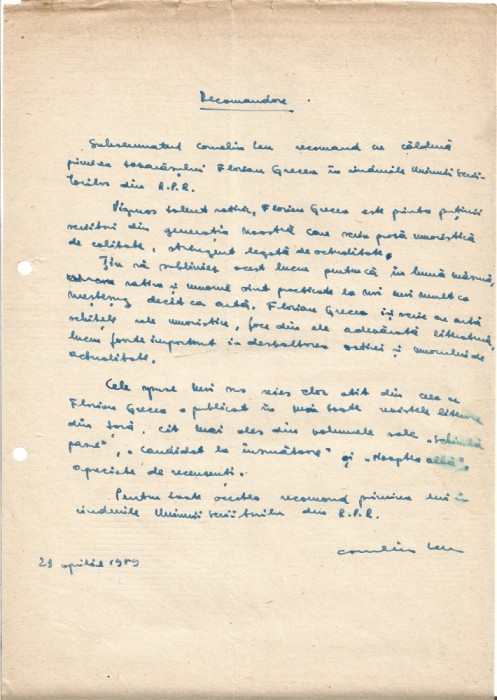 Recomandare
Subsemnatul Corneliu Leu recomand cu căldură
primirea tovarășului Florian Grecea în rîndurile Uniunii Scrii-
torilor din R.P.R.
Viguros talent satiric, Florian Grecea este printre puținii
scriitori din generația noastră care scriu proză umoristică
de calitate, strîngent legată de actualitate.
Țin să subliniez acest lucru pentru că în bună măsură,
satira și umorul sînt practicate la noi mai mult ca
meșteșug decît ca artă. Florian Grecea își scrie cu artă
schițele sale umoristice, face din ele adevărată literatură,
lucru foarte important în desvoltarea satirei și umorului de
actualitate.
Cele spuse mai sus reies clar atît din ceea ce
Florian Grecea a publicat în mai toate revistele literare
din țară, cît mai ales din volumele sale
"Candidat la însurătoare" și "Noaptea albă",
apreciate de recenzenți.
Pentru toate acestea recomand primirea lui în
rîndurile Uniunii Scriitorilor din R.P.R.
Corneliu Leu
29 aprilie 1959